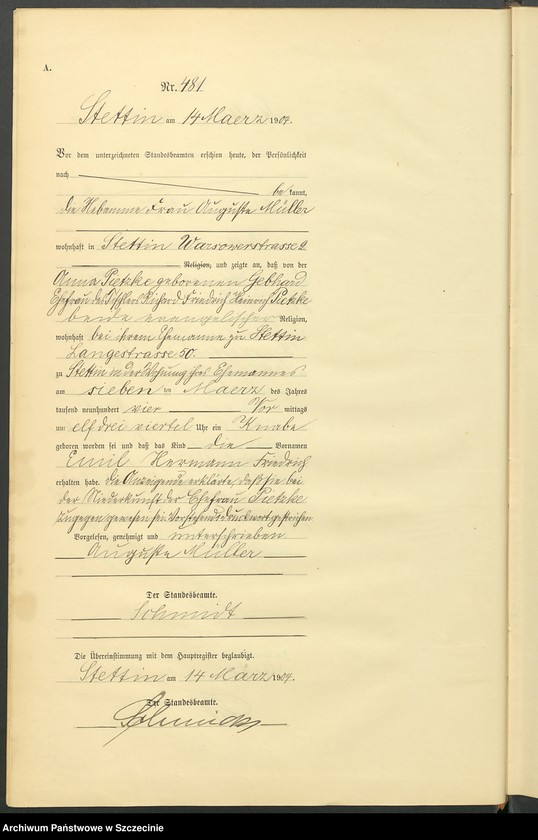 A.
Nr. 481
Stettin am 14 Maerz 1904.
Vor dem unterzeichneten Standesbeamten erschien heute, der Persönlichkeit
nach
bekannt,
die Hebamme Frau Auguste Müller
wohnhaft in Stettin Warsowerstrasse 2
Religion, und zeigte an, daß von der
Anna Pietzke geborenen Gebhard
Ehefrau des Tischlers Richard Friedrich Heinrich Pietzke
beide evangelischer Religion,
wohnhaft bei ihrem Ehemanne zu Stettin
Langestrasse 50.
zu Stettin in der Wohnung ihres Ehemannes
am sieben ten Maerz des Jahres
tausend neunhundert vier Vor mittags
um elf drei viertel Uhr ein Knabe
geboren worden sei und daß das Kind die Vornamen
Emil Hermann Friedrich
erhalten habe. Die Anzeigende erklärte, daß sie bei
der Niederkunft der Ehefrau Pietzke
zugegen gewesen sei. Vorstehend 1 Druckwort gestrichen
Vorgelesen, genehmigt und unterschrieben
Auguste Müller
Der Standesbeamte.
Schmidt
Die Übereinstimmung mit dem Hauptregister beglaubigt.
Stettin am 14 März 1904.
Der Standesbeamte.
Archiwum Państwowe w Szczecinie